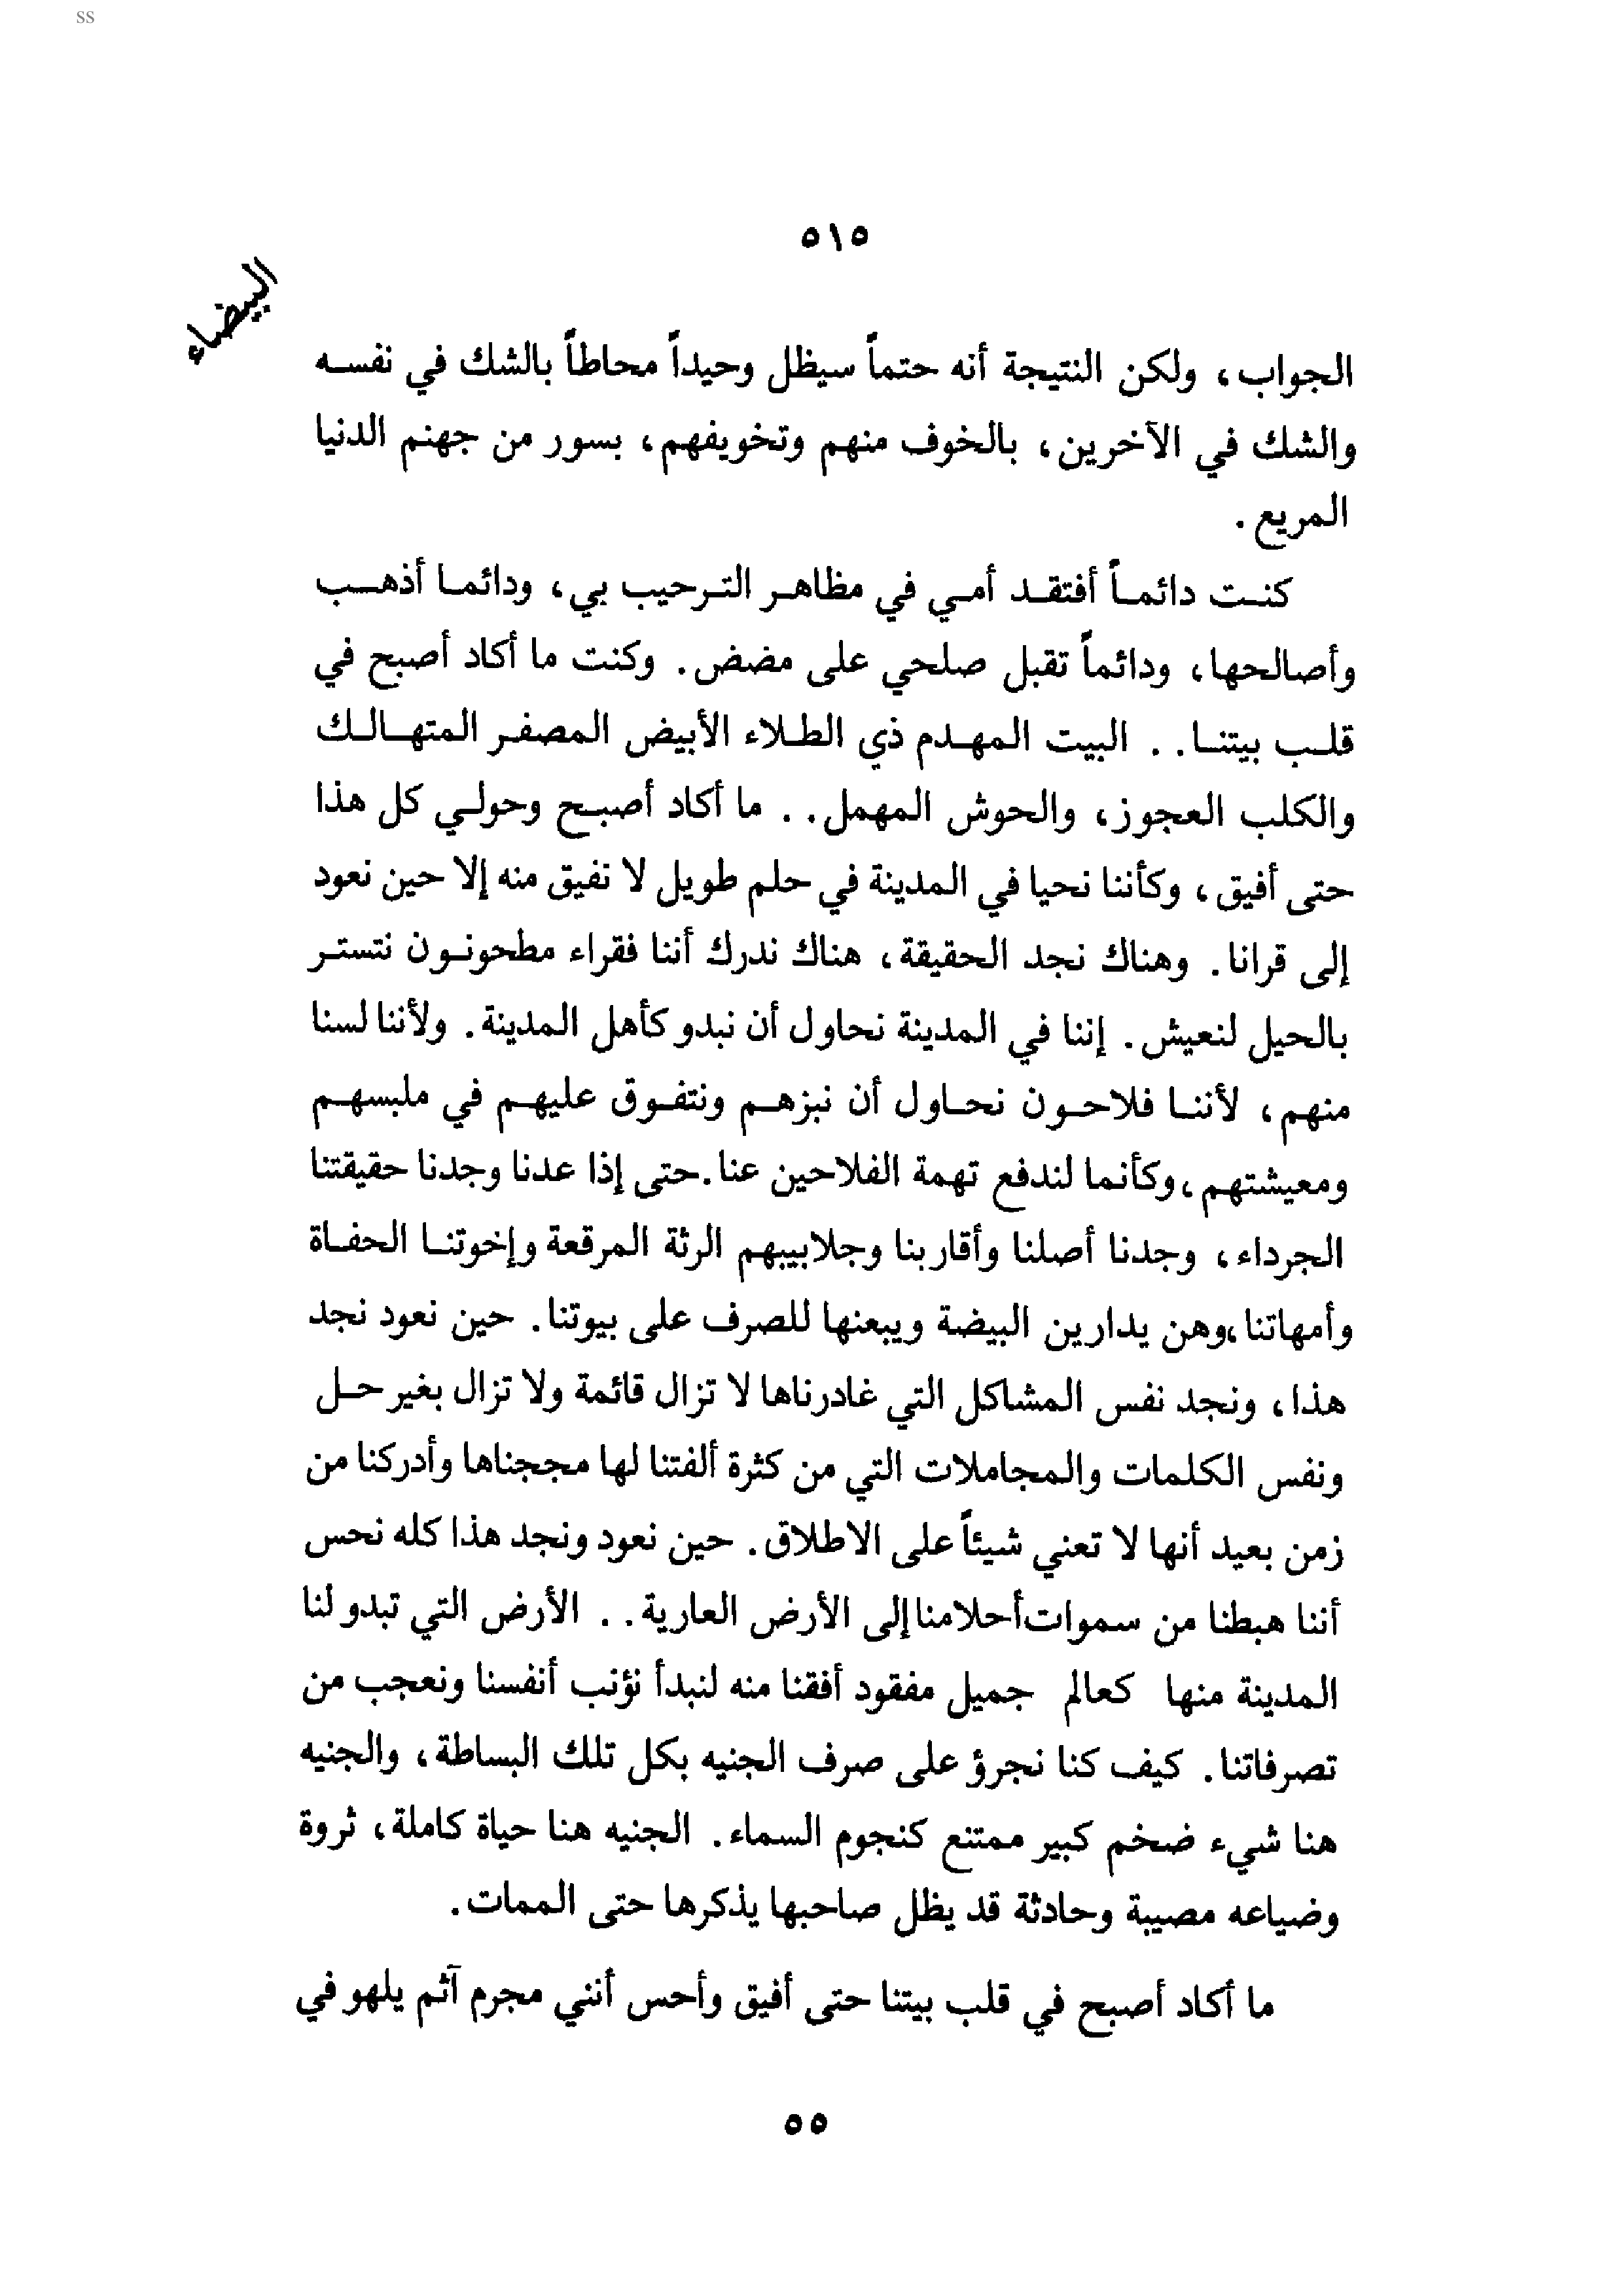 ss
٥١٥
البيضاء
الجواب، ولكن النتيجة أنه حتماً سيظل وحيداً محاطاً بالشك في نفسه
والشك في الآخرين، بالخوف منهم وتخويفهم، بسور من جهنم الدنيا
المريع.
كنت دائماً أفتقد أمي في مظاهر الترحيب بي، ودائما أذهب
وأصالحها، ودائماً تقبل صلحي على مضض. وكنت ما أكاد أصبح في
قلب بيتنا.. البيت المهدم ذي الطلاء الأبيض المصفر المتهالك
والكلب العجوز، والحوش المهمل.. ما أكاد أصبح وحولي كل هذا
حتى أفيق، وكأننا نحيا في المدينة في حلم طويل لا نفيق منه إلا حين نعود
إلى قرانا. وهناك نجد الحقيقة، هناك ندرك أننا فقراء مطحونون نتستر
بالحيل لنعيش. إننا في المدينة نحاول أن نبدو كأهل المدينة. ولأننا لسنا
منهم، لأننا فلاحون نحاول أن نبزهم ونتفوق عليهم في ملبسهم
ومعيشتهم، وكأنما لندفع تهمة الفلاحين عنا. حتى إذا عدنا وجدنا حقيقتنا
الجرداء، وجدنا أصلنا وأقاربنا وجلابيبهم الرثة المرقعة وإخوتنا الحفاة
وأمهاتنا، وهن يدارين البيضة ويبعنها للصرف على بيوتنا. حين نعود نجد
هذا، ونجد نفس المشاكل التي غادرناها لا تزال قائمة ولا تزال بغير حل
ونفس الكلمات والمجاملات التي من كثرة ألفتنا لها مججناها وأدركنا من
زمن بعيد أنها لا تعني شيئاً على الاطلاق. حين نعود ونجد هذا كله نحس
أننا هبطنا من سموات أحلامنا إلى الأرض العارية.. الأرض التي تبدو لنا
المدينة منها كعالم جميل مفقود أفقنا منه لنبدأ نؤنب أنفسنا ونعجب من
تصرفاتنا. كيف كنا نجرؤ على صرف الجنيه بكل تلك البساطة، والجنيه
هنا شيء ضخم كبير ممتنع كنجوم السماء. الجنيه هنا حياة كاملة، ثروة
وضياعه مصيبة وحادثة قد يظل صاحبها يذكرها حتى الممات.
ما أكاد أصبح في قلب بيتنا حتى أفيق وأحس أنني مجرم آثم يلهو في
٥٥